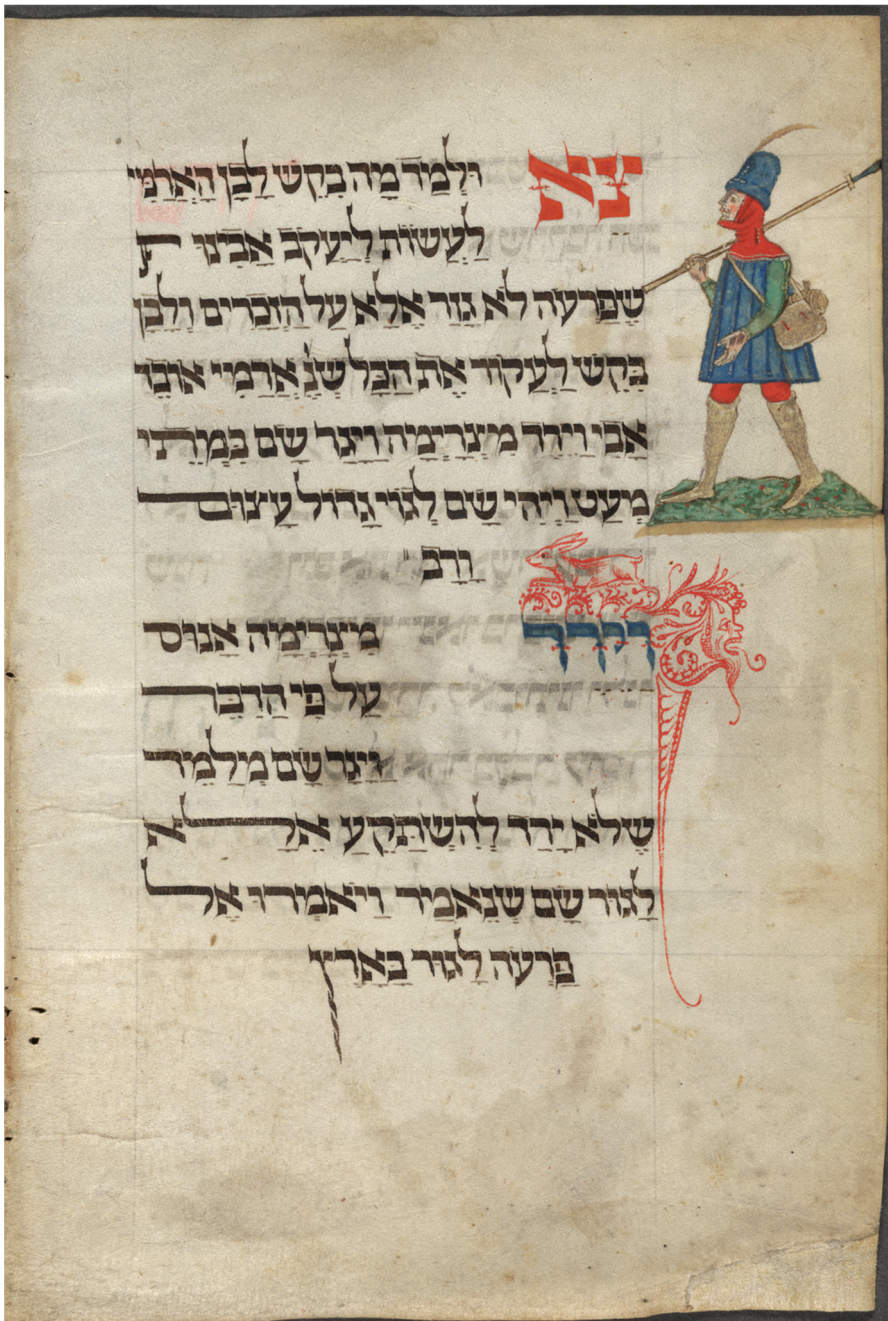 צא וּלְמַד מַה בִּקֵשׁ לָבָן הָאֲרַמִּי
לַעֲשׂוֹת לְיַעֲקֹב אָבִינוּ
שֶׁפַּרְעֹה לֹא גָזַר אֶלָּא עַל הַזְּכָרִים וְלָבָן
בִּקֵּשׁ לַעֲקוֹר אֶת הַכֹּל שֶׁנֶּ אֲרַמִּי אוֹבֵד
אָבִי וַיֵּרֶד מִצְרַיְמָה וַיָּגָר שָׁם בִּמְתֵי
מְעַט וַיְהִי שָׁם לְגוֹי גָּדוֹל עָצוּם
וָרָב
וירד מִצְרַיְמָה אָנוּס
עַל פִּי הַדִּבֵּר
וַיָּגָר שָׁם מְלַמֵּד
שֶׁלֹּא יָרַד לְהִשְׁתַּקֵּעַ אֶלָּא
לָגוּר שָׁם שֶׁנֶּאֱמַר וַיֹּאמְרוּ אֶל
פַּרְעֹה לָגוּר בָּאָרֶץ